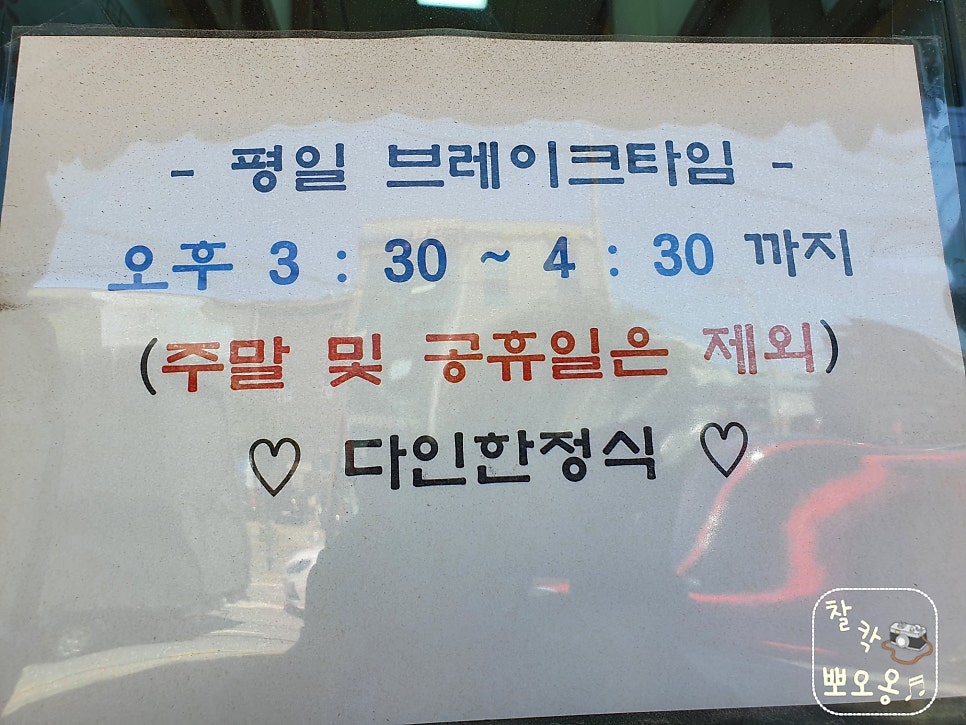 - 평일 브레이크타임 -
오후 3 : 30 ~ 4 : 30 까지
(주말 및 공휴일은 제외)
♡ 다인한정식 ♡
찰칵
뽀오옹♬